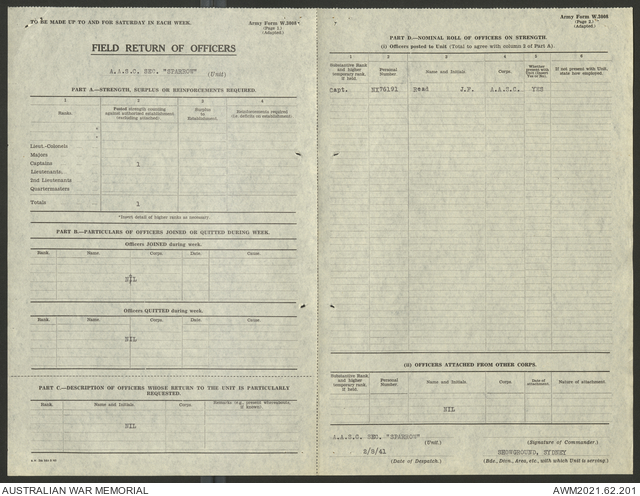 TO BE MADE UP TO AND FOR SATURDAY IN EACH WEEK.
Army Form W.3008
(Page 1.)
(Adapted.)
FIELD RETURN OF OFFICERS
A.A.S.C. SEC. "SPARROW" (Unit)
PART A.—STRENGTH, SURPLUS OR REINFORCEMENTS REQUIRED.
1 2 3 4
Ranks. Posted strength counting against authorised establishment (excluding attached). Surplus to Establishment. Reinforcements required (i.e. deficits on establishment)
*
*
Lieut.-Colonels
Majors
Captains 1
Lieutenants.
2nd Lieutenants
Quartermasters
Totals 1
*Insert detail of higher ranks as necessary.
PART B.—PARTICULARS OF OFFICERS JOINED OR QUITTED DURING WEEK.
Officers JOINED during week.
Rank. Name. Corps. Date. Cause.
NIL
Officers QUITTED during week.
Rank. Name. Corps. Date. Cause.
NIL
PART C.—DESCRIPTION OF OFFICERS WHOSE RETURN TO THE UNIT IS PARTICULARLY REQUESTED.
Rank. Name and Initials. Corps. Remarks (e.g., present whereabouts, if known).
NIL
Army Form W.3008
(Page 2.)
(Adapted.)
PART D.—NOMINAL ROLL OF OFFICERS ON STRENGTH.
(i) Officers posted to Unit (Total to agree with column 2 of Part A).
1 2 3 4 5 6
Substantive Rank and higher temporary rank, if held. Personal Number. Name and Initial. Corps. Whether present with Unit (Insert Yes or No). If not present with Unit, state how employed.
Capt. NX76191 Read J.F. A.A.S.C. YES
(ii) OFFICERS ATTACHED FROM OTHER CORPS.
Substantive Rank and higher temporary rank, if held. Personal Number. Name and Initials. Corps. Date of attachment. Nature of attachment.
NIL
A.A.S.C. SEC. "SPARROW"
(Unit.) (Signature of Commander.)
2/8/41 SHOWGROUND, SYDNEY
(Date of Despatch.) (Bde., Divn., Area, etc., with which Unit is serving.)
AUSTRALIAN WAR MEMORIAL
AWM2021.62.201